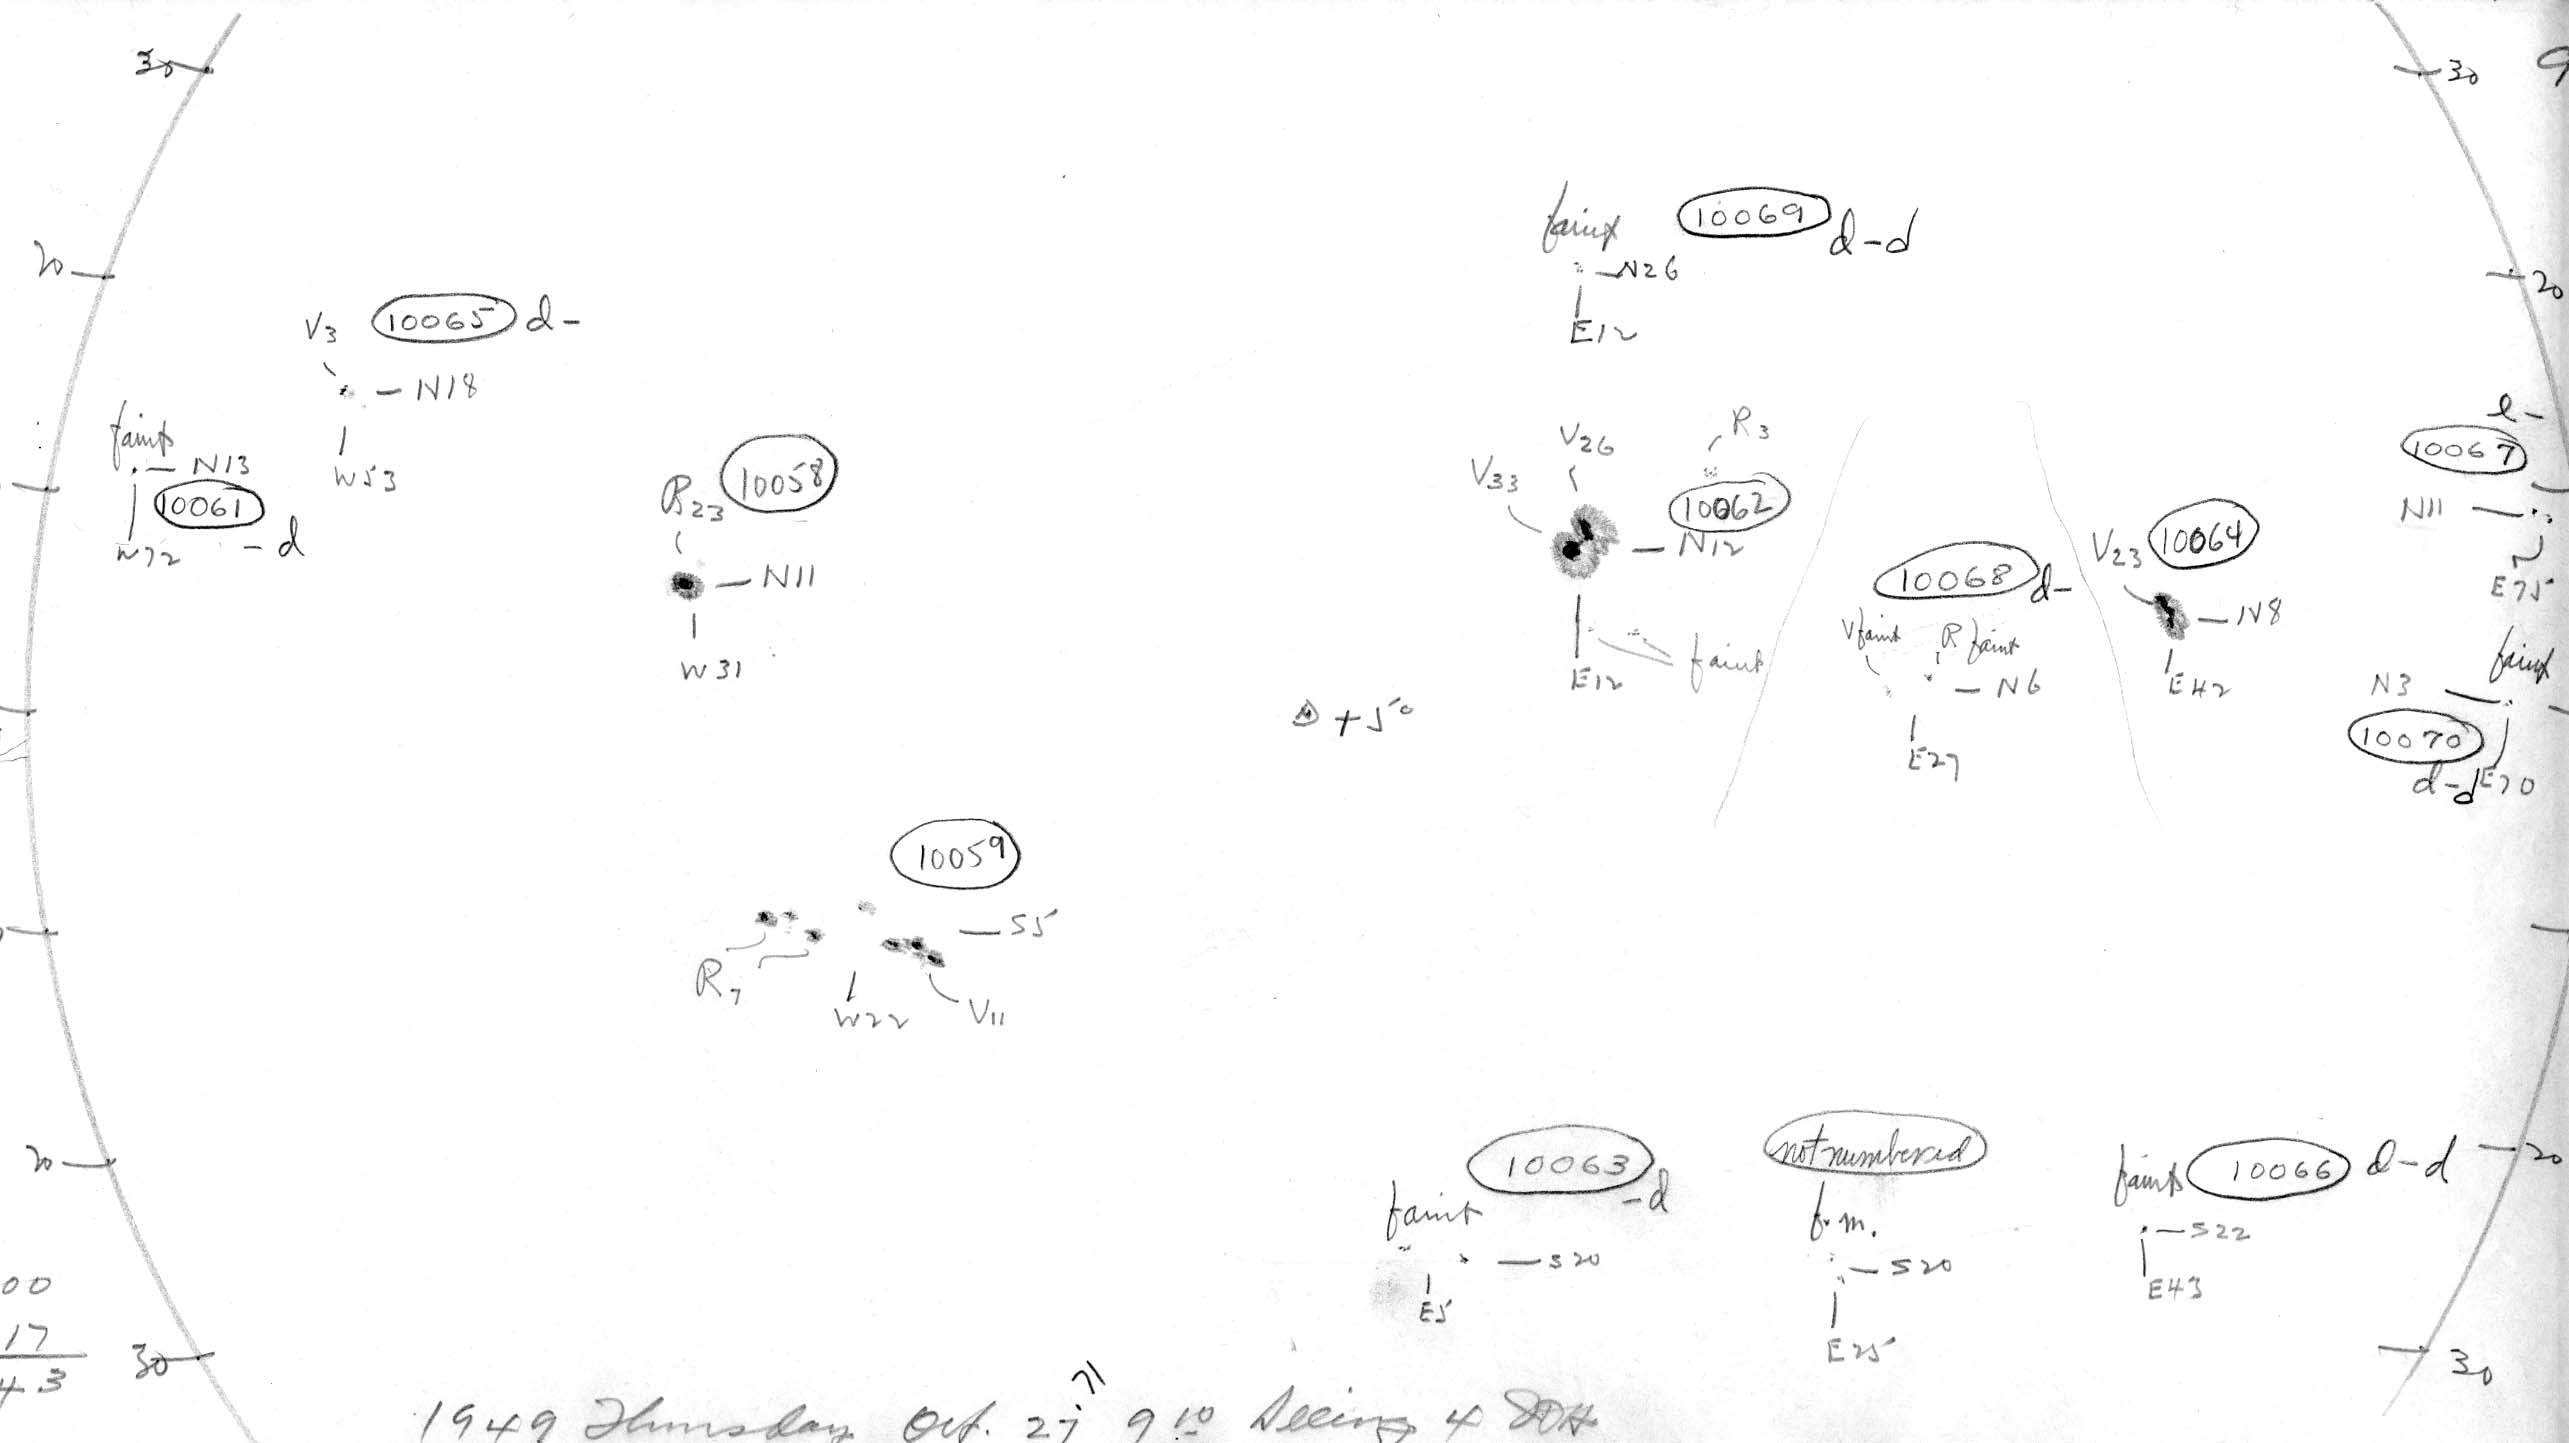 30
30
9
faint 10069 d-d
N26
E12
20
20
V3 10065 d-
N18
W53
faint
N13
10061
W72 -d
R23 10058
N11
W31
V26
V33
R3
10062
N12
faint
E12
10068 d-
V faint R faint
N6
E27
V23 10064
N8
E42
e-
10067
N11
E75
faint
N3
10070
d-d E70
+5°
10059
S5
R7
W22 V11
20
10063 -d
faint
S20
E5
not numbered
f.m.
S20
E25
faint 10066 d-d
S22
E43
20
00
17
43
30
30
1949 Thursday Oct. 27, 9 10 Seeing 4